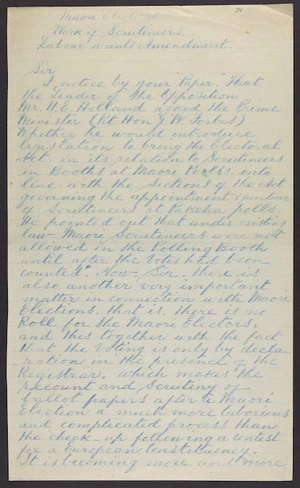 Maori Elections.
Work of Scrutineers.
Labour wants Amendment.
Sir
I notice by your "Paper" That
the Leader of the Opposition
Mr. H. E. Holland asked the Prime
Minister (Rt Hon. G. W. Forbes)
Whether he would introduce
legislation to bring the Electoral
Act in its relation to Scrutineers
in Booths at Maori Polls into
line with the sections of the Act
governing the appointment & functions
of Scrutineers at Pakeha polls.
He pointed out that under existing
law Maori Scrutineers were not
allowed in the Polling Booth
until after the Votes had been
counted". Now Sir, there is
also another very important
matter in connection with Maori
Elections. that is, there is no
Roll for the Maori Electors,
and this together with the fact
that the voting is only by decla-
ration in the presence of the
Registrar, which makes the
recount and Scrutiny of
ballot papers after a Maori
Election a much more laborious
and complicated process than
the check-up following a contest
for a European Constituency.
It is becoming more and more